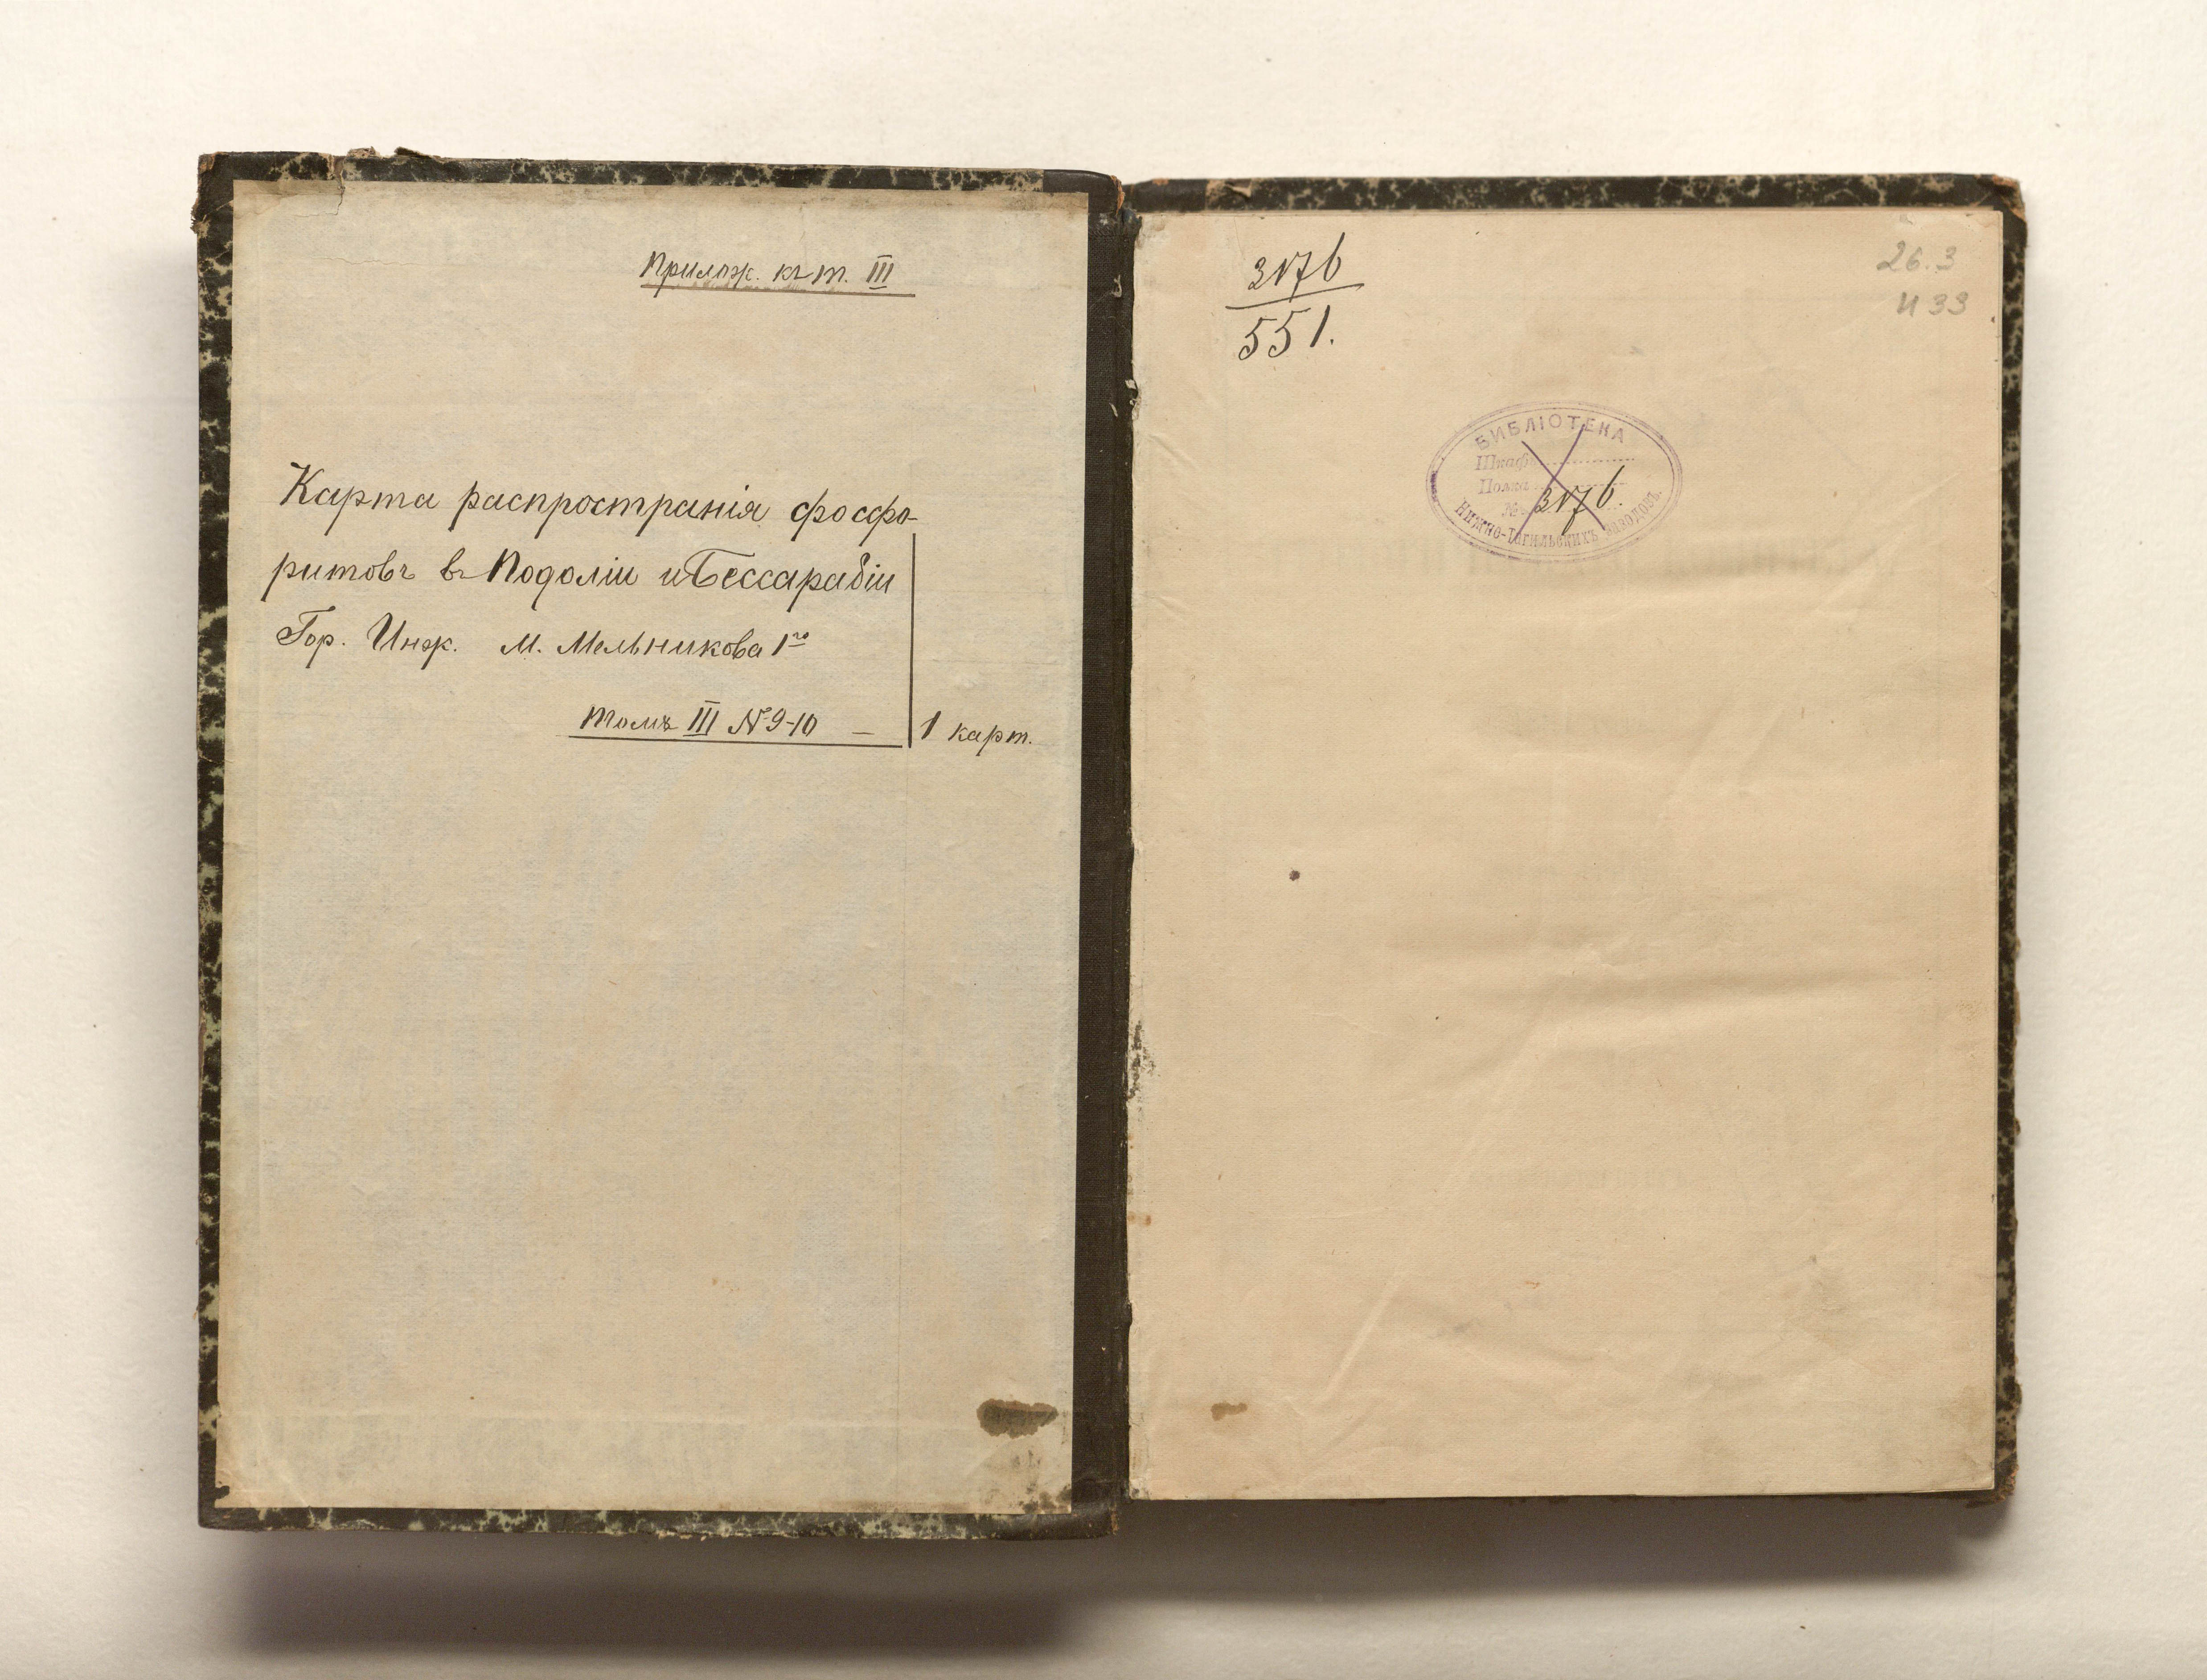 Прилож. къ т. III
Карта распространія фосфо-
ритовъ въ Подоліи и Бессарабіи
Гор. Инж. М. Мельникова 1го
Томъ III № 9-10 — 1 карт.
551.
26.3
И 33
БИБЛІОТЕКА
Шкафъ
Полка
№
НИЖНЕ-ТАГИЛЬСКИХЪ ЗАВОДОВЪ.